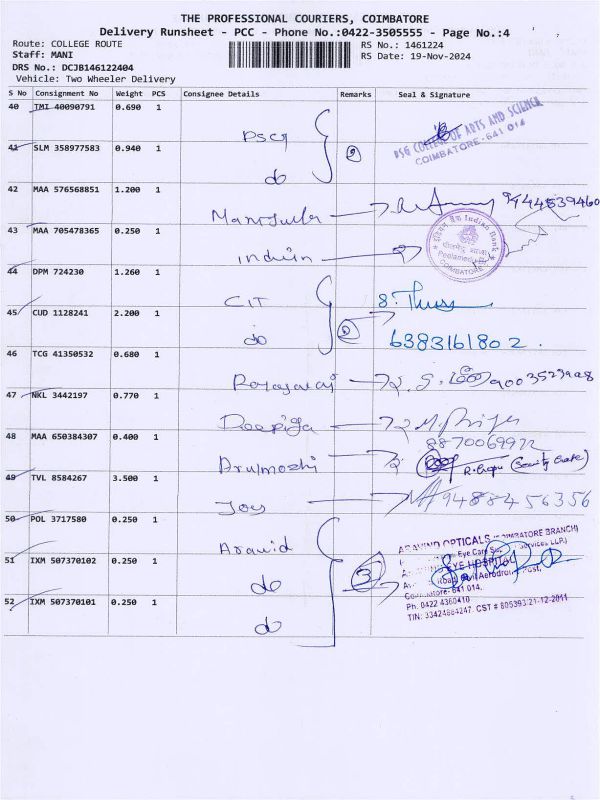 THE PROFESSIONAL COURIERS, COIMBATORE
Delivery Runsheet - PCC - Phone No.:0422-3505555 - Page No.:4
Route: COLLEGE ROUTE RS No.: 1461224
Staff: MANI RS Date: 19-Nov-2024
DRS No.: DCJB146122404
Vehicle: Two Wheeler Delivery
S No Consignment No Weight PCS Consignee Details Remarks Seal & Signature
40 TMI 40090791 0.690 1
PSG
PSG COLLEGE OF ARTS AND SCIENCE
COIMBATORE-641 014
41 SLM 358977583 0.940 1
do
42 MAA 576568851 1.200 1
9444539460
43 MAA 705478365 0.250 1
Indian
Indian Bank
COIMBATORE
44 DPM 724230 1.260 1
CIT
45 CUD 1128241 2.200 1
do
6383161802.
46 TCG 41350532 0.680 1
47 NKL 3442197 0.770 1
Deepiga
48 MAA 650384307 0.400 1
8870069972
Arulmozhi
49 TVL 8584267 3.500 1
Joy 9488456356
50 POL 3717580 0.250 1
Aravid
ARAVIND OPTICALS (COIMBATORE BRANCH)
EYE HOSPITAL
51 IXM 507370102 0.250 1
do 3
641 014.
Ph. 0422 4360410
52 IXM 507370101 0.250 1
do
TIN: 33424884247. CST # 805393/21-12-2011